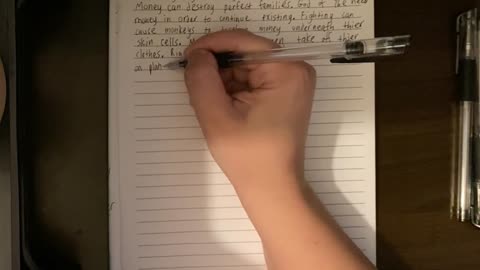 Money can destroy perfect families. God is
money in order to continue existing. Fighting can
cause monkeys to money underneath thier
skin cells. take off thier
clothes.
on plan